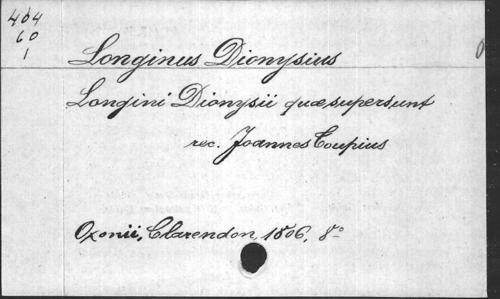 404
60
1
Longinus Dionysius
Longini Dionysii quæ supersunt
rec. Joannes Toupius
Oxonii, Clarendon, 1806, 8°